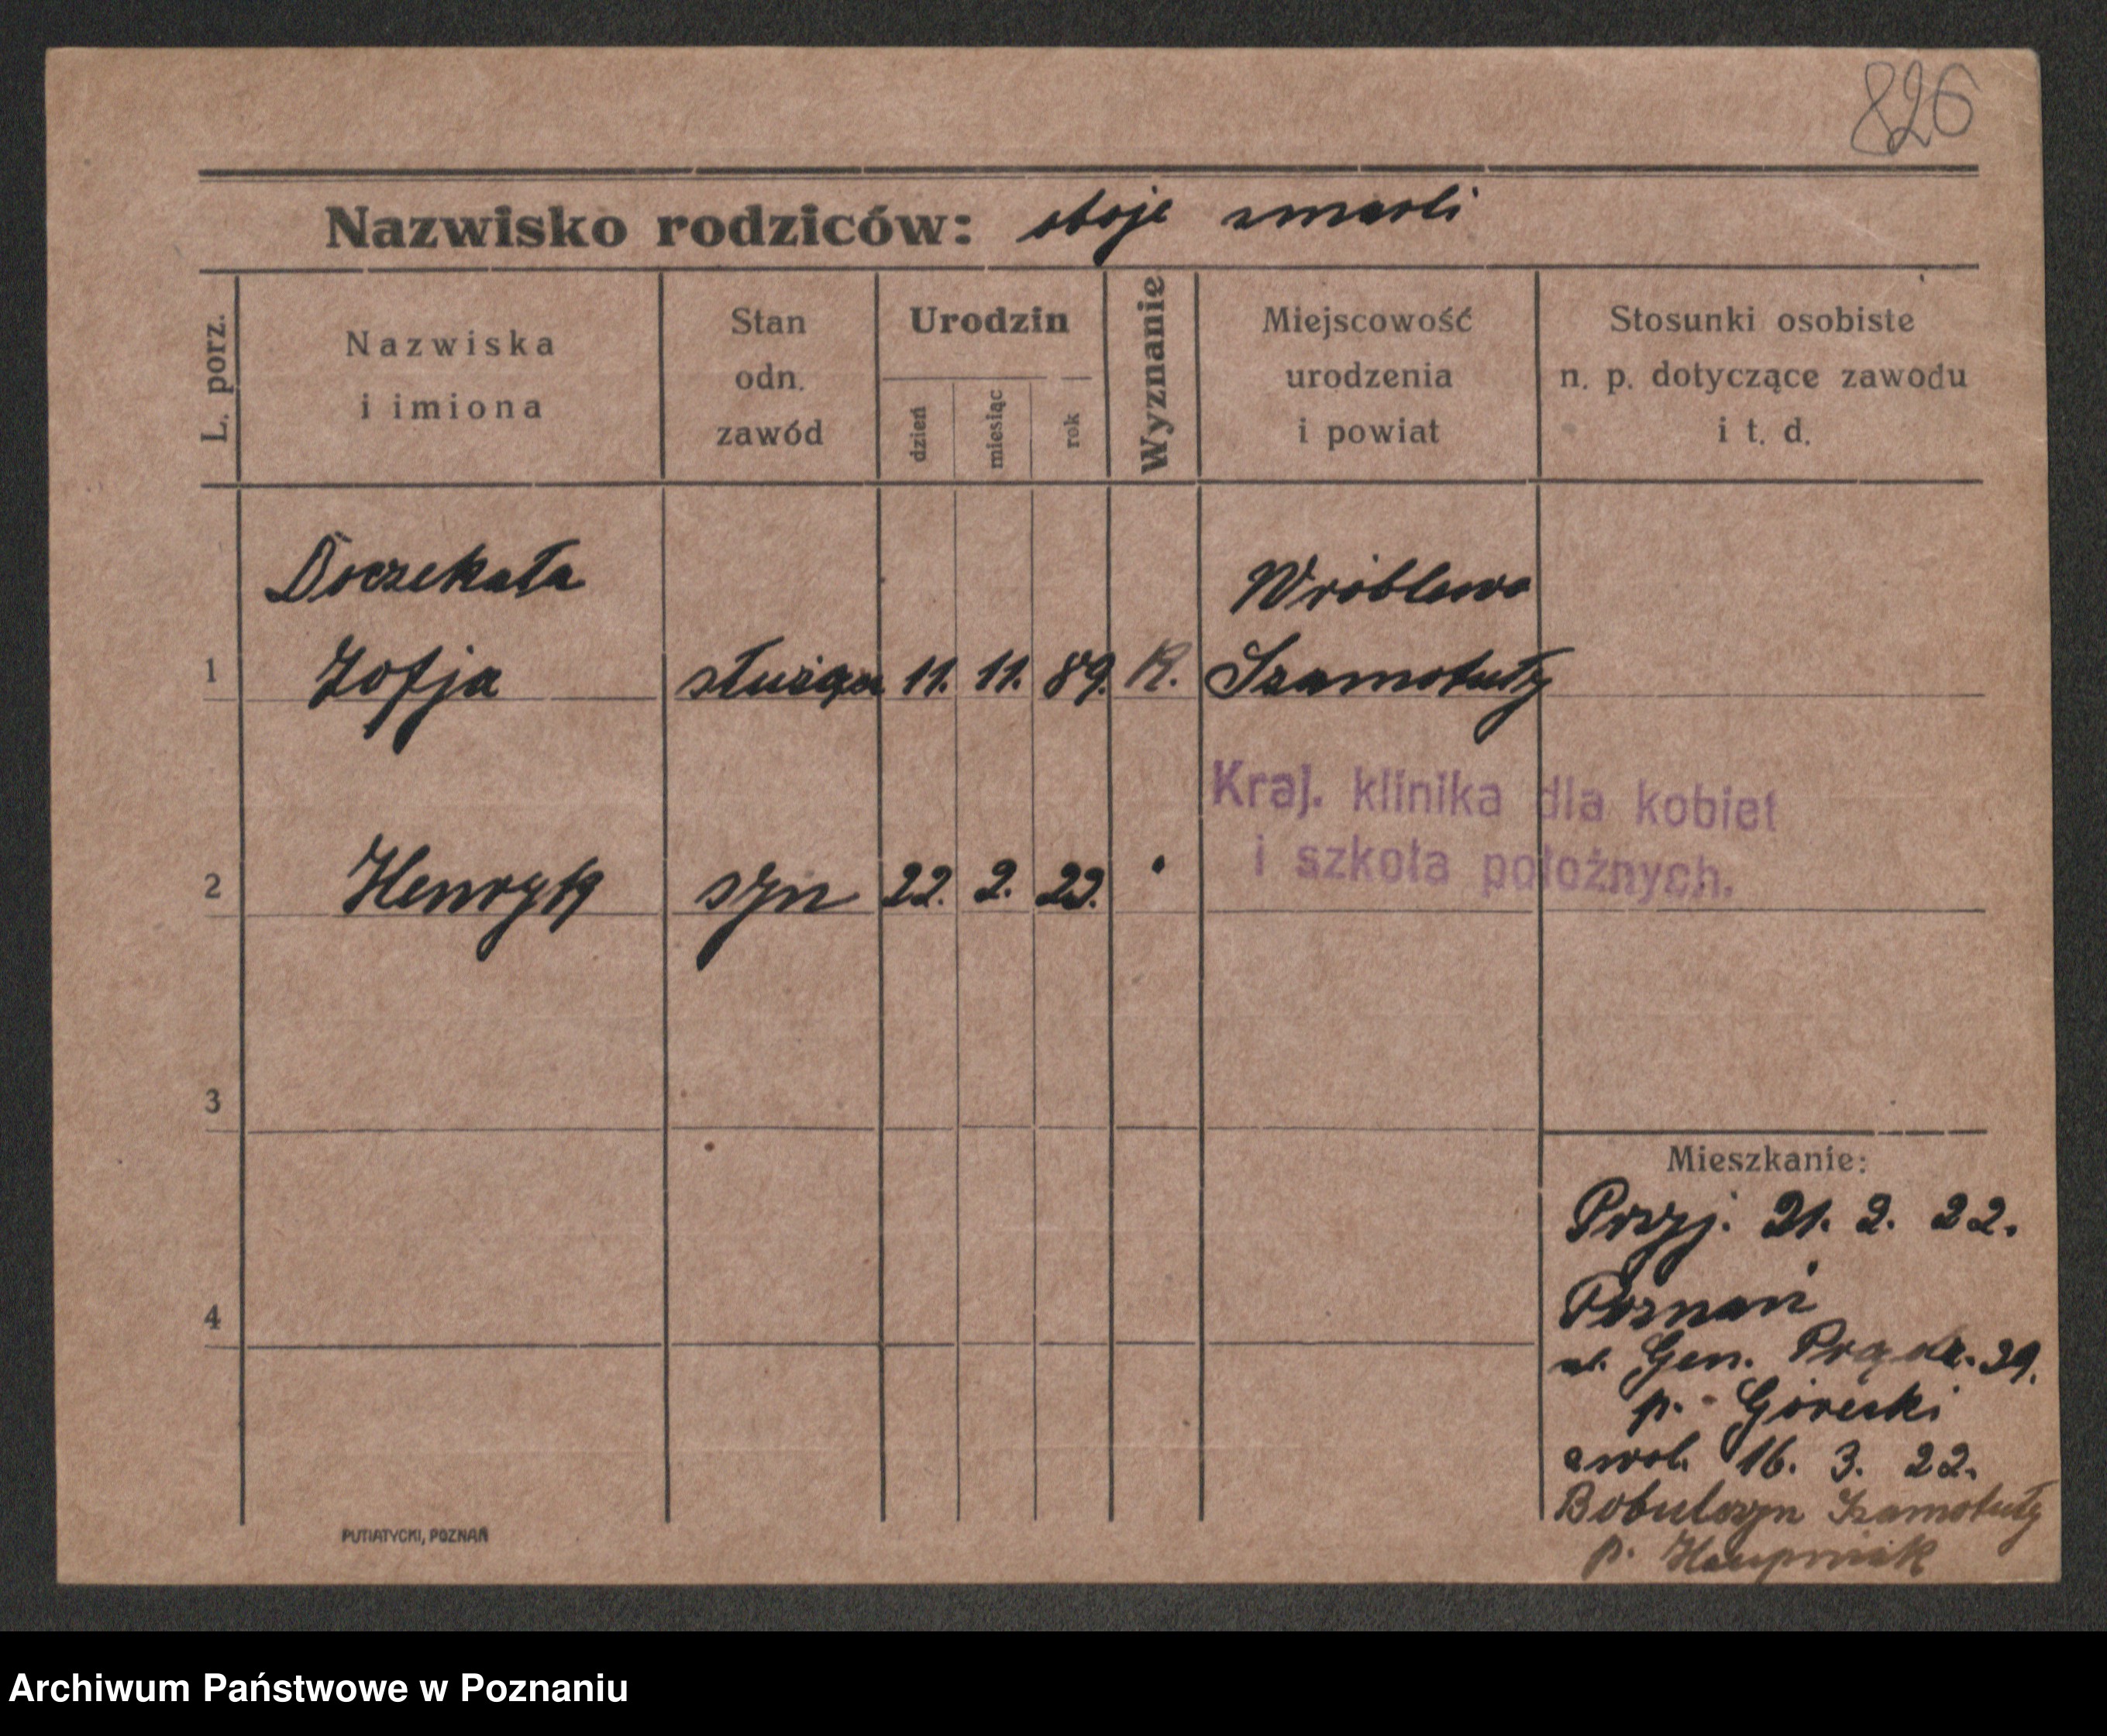 826
Nazwisko rodziców: oboje zmarli
L. porz.
Nazwiska
i imiona
Stan
odn.
zawód
Urodzin
dzień
miesiąc
rok
Wyznanie
Miejscowość
urodzenia
i powiat
Stosunki osobiste
n. p. dotyczące zawodu
i t. d.
Doczekała Wróblewo
1 Zofja służąca 11. 11. 89. K. Szamotuły
Kraj. klinika dla kobiet
i szkoła położnych.
2 Henryk syn 22. 2. 22.
3
4
Mieszkanie:
Przyj. 21. 2. 22.
Poznań
ul. Gen. Prądz. 39.
p. Górecki
zwol. 16. 3. 22.
Bobulczyn Szamotuły
p.
PUTIATYCKI, POZNAŃ
Archiwum Państwowe w Poznaniu